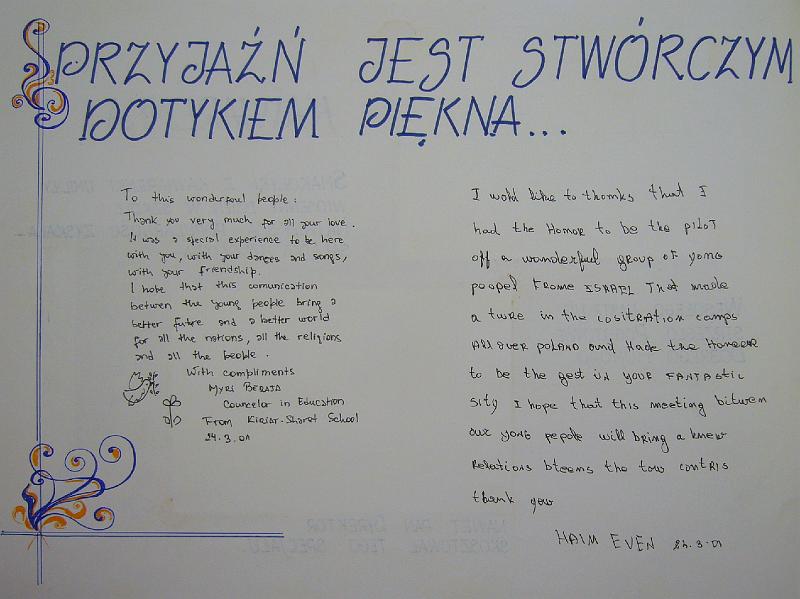 PRZYJAŹŃ JEST STWÓRCZYM
DOTYKIEM PIĘKNA...
To this wonderful people:
Thank you very much for all your love.
It was a special experience to be here
with you, with your dances and songs,
with your friendship.
I hope that this comunication
betwen the young people bring a
better future and a better world
for all the nations, all the religions
and all the people.
With compliments
Myri
Councelor in Education
From Kiriat-Sharet School
24.3.01
I wold like to thanks that I
had the Honor to be the pilot
off a wanderful group of yong
poopel Frome ISRAEL That made
a ture in the cositration camps
All over poland and Hade the Honeer
to be the gest in your FANTAStic
sity I hope that this meeting bitwen
our yong pepole will bring a knew
Relations bteems the tow contris
thank you
HAIM EVEN 24.3.01